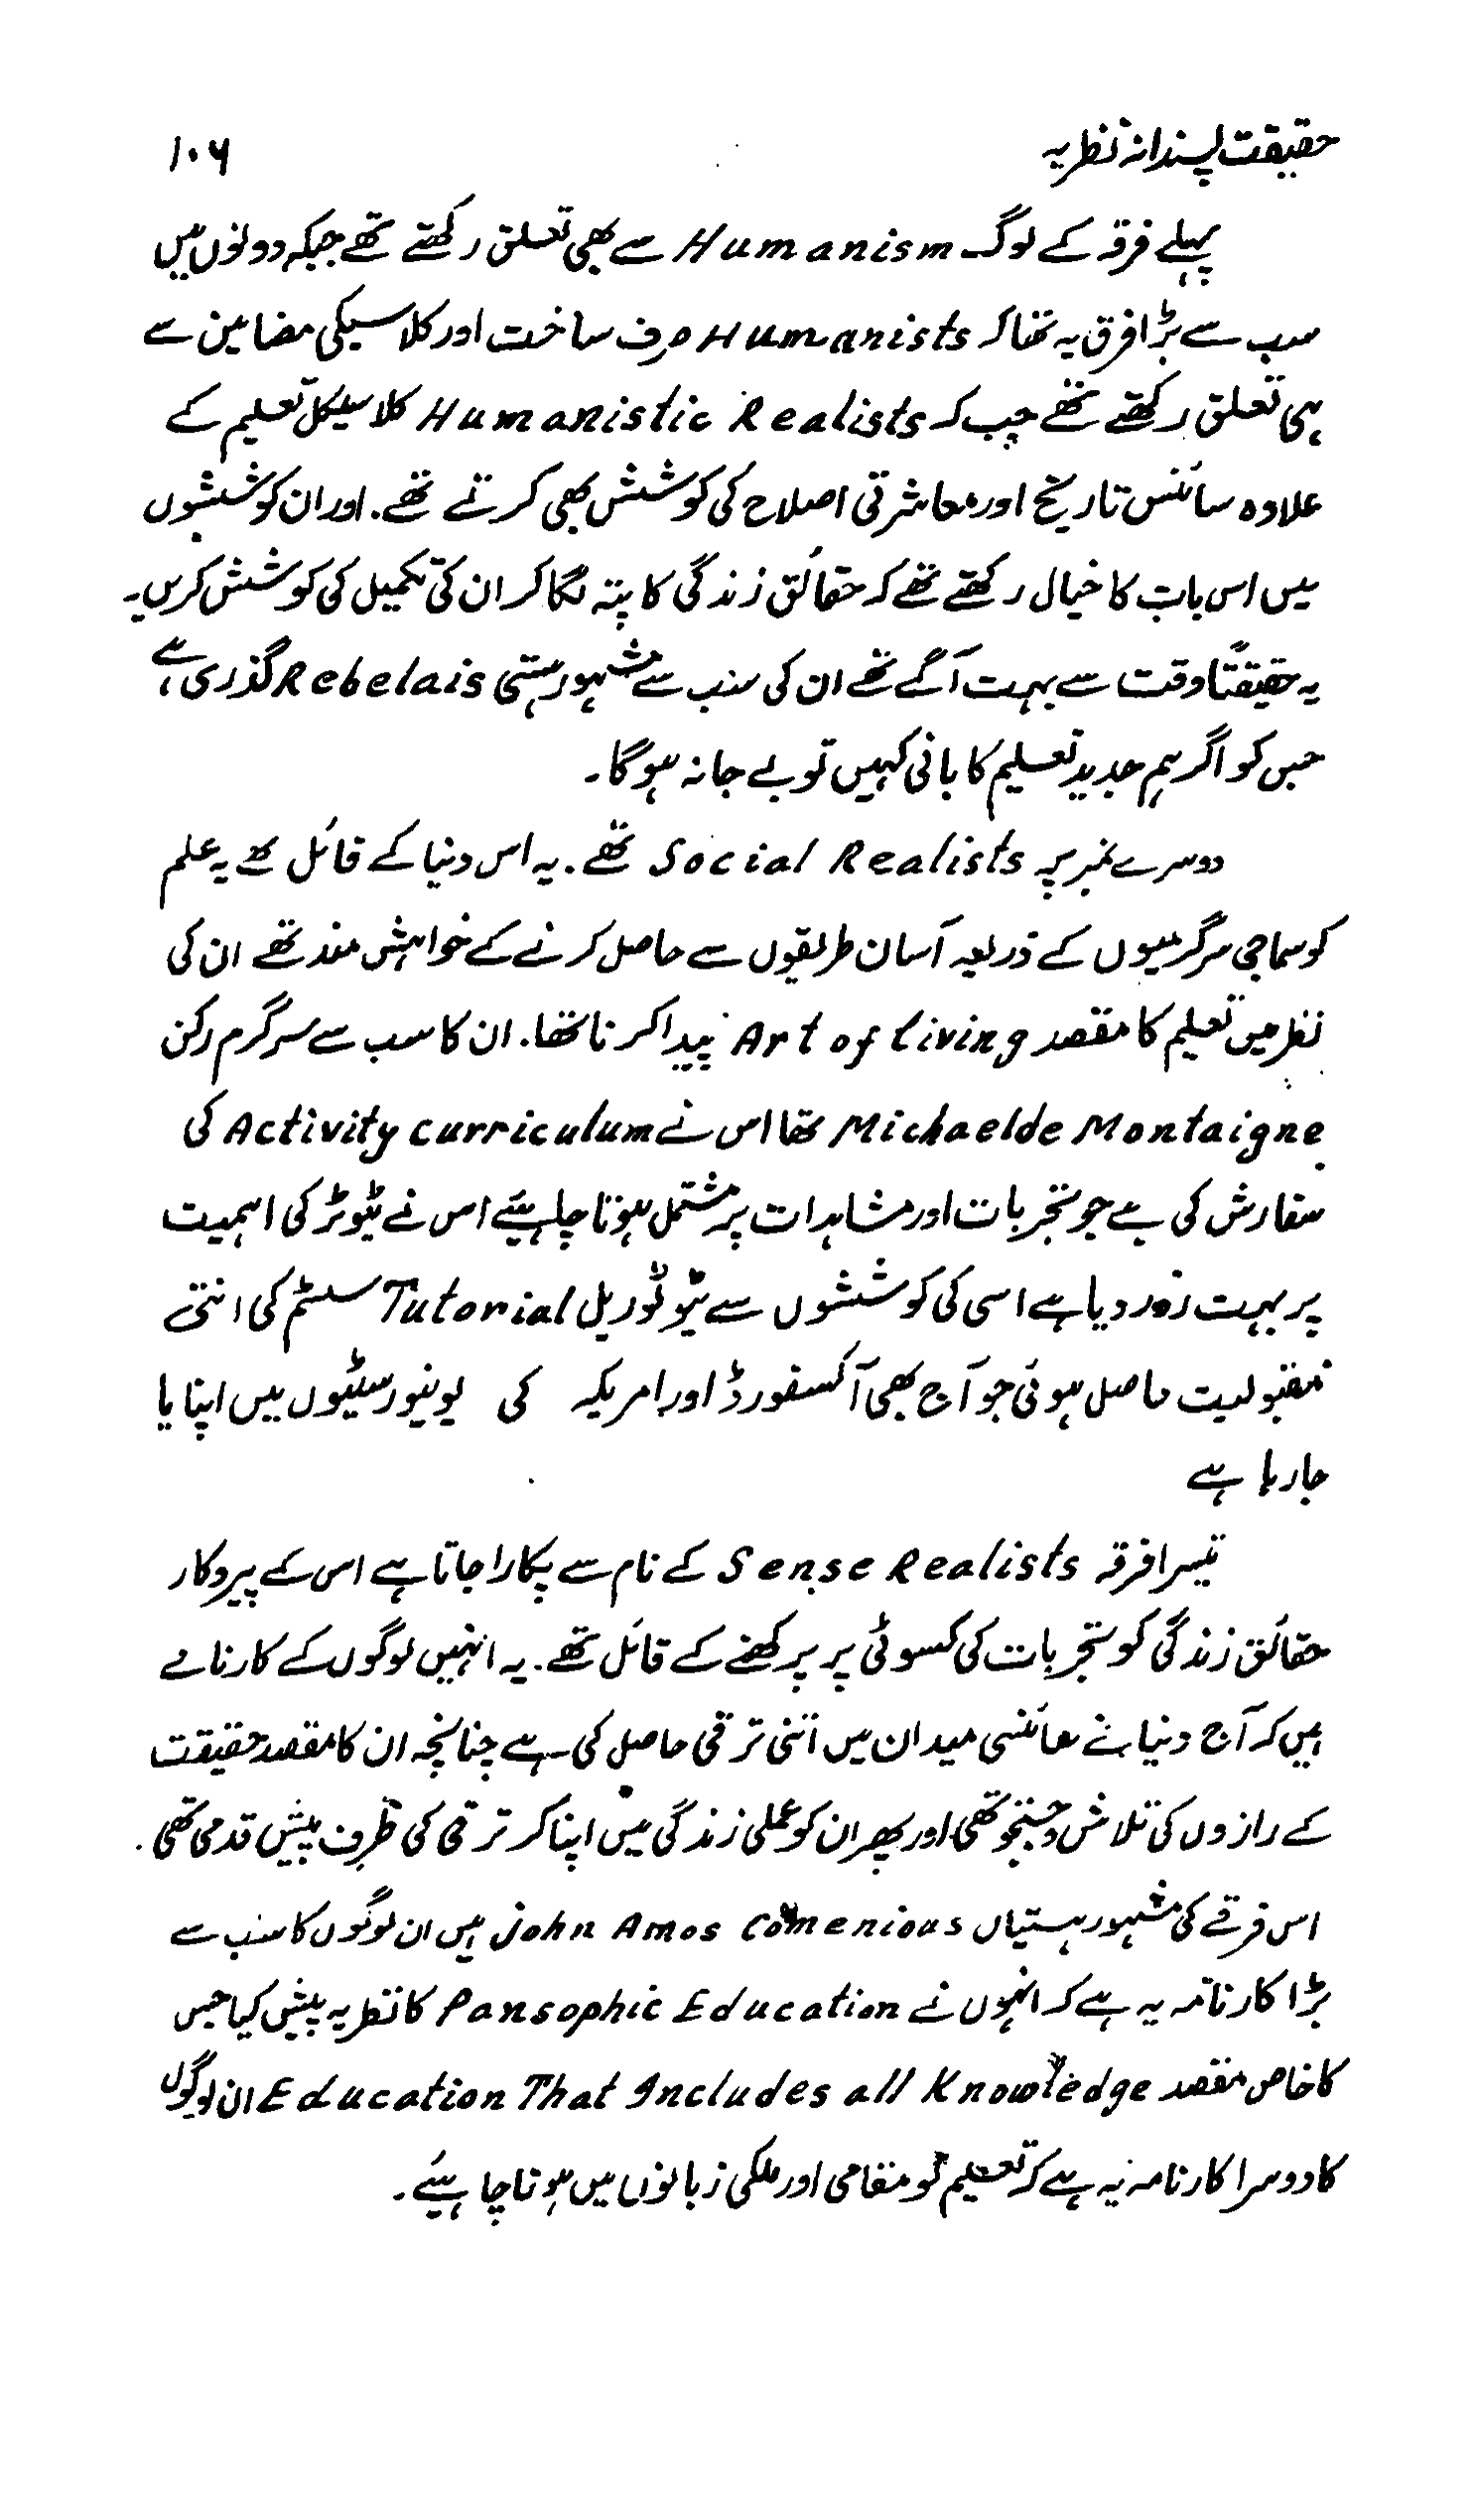 حقیقت پسندانہ نظریہ ۱۰۶
پہلے فرقہ کے لوگ Humanism سے بھی تعلق رکھتے تھے جبکہ دونوں میں
سب سے بڑا فرق یہ تھا کہ Humanists صرف ساخت اور کلاسیکی مضامین سے
ہی تعلق رکھتے تھے جب کہ Humanistic Realists کلاسیکل تعلیم کے
علاوہ سائنس تاریخ اور معاشرتی اصلاح کی کوشش بھی کرتے تھے۔ اور ان کوششوں
میں اس بات کا خیال رکھتے تھے کہ حقائق زندگی کا پتہ لگا کر ان کی تکمیل کی کوشش کریں۔
یہ حقیقتاً وقت سے بہت آگے تھے ان کی سب سے مشہور ہستی Rebelais گذری ہے،
جس کو اگر ہم جدید تعلیم کا بانی کہیں تو بے جا نہ ہوگا۔
دوسرے نمبر پر Social Realists تھے۔ یہ اس دنیا کے قائل تھے یہ علم
کو سماجی سرگرمیوں کے ذریعہ آسان طریقوں سے حاصل کرنے کے خواہش مند تھے ان کی
نظر میں تعلیم کا مقصد Art of living پیدا کرنا تھا۔ ان کا سب سے سرگرم رکن
Michaelde Montaigne تھا اس نے Activity curriculum کی
سفارش کی ہے جو تجربات اور مشاہدات پر مشتمل ہونا چاہیئے اس نے ٹیوٹر کی اہمیت
پر بہت زور دیا ہے اسی کی کوششوں سے ٹیوٹوریل Tutorial سسٹم کی اتنی
مقبولیت حاصل ہوئی جو آج بھی آکسفورڈ اور امریکہ کی یونیورسٹیوں میں اپنایا
جا رہا ہے
تیسرا فرقہ Sense Realists کے نام سے پکارا جاتا ہے اس کے پیروکار
حقائق زندگی کو تجربات کی کسوٹی پر پرکھنے کے قائل تھے۔ یہ انہیں لوگوں کے کارنامے
ہیں کہ آج دنیا نے سائنسی میدان میں اتنی ترقی حاصل کی ہے چنانچہ ان کا مقصد حقیقت
کے رازوں کی تلاش و جستجو تھی اور پھر ان کو عملی زندگی میں اپنا کر ترقی کی طرف پیش قدمی تھی۔
اس فرقے کی مشہور ہستیاں John Amos Comenious ہیں ان لوگوں کا سب سے
بڑا کارنامہ یہ ہے کہ انہوں نے Pansophic Education کا نظریہ پیش کیا جس
کا خاص مقصد Education That Includes all Knowledge ان لوگوں
کا دوسرا کارنامہ یہ ہے کہ تعلیم کو مقامی اور ملکی زبانوں میں ہونا چاہیئے۔